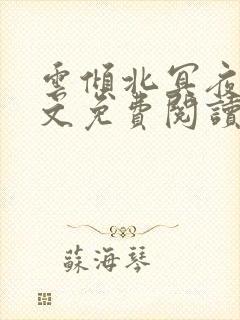 雲傾北冥夜
文免費閱讀
蘇海琴